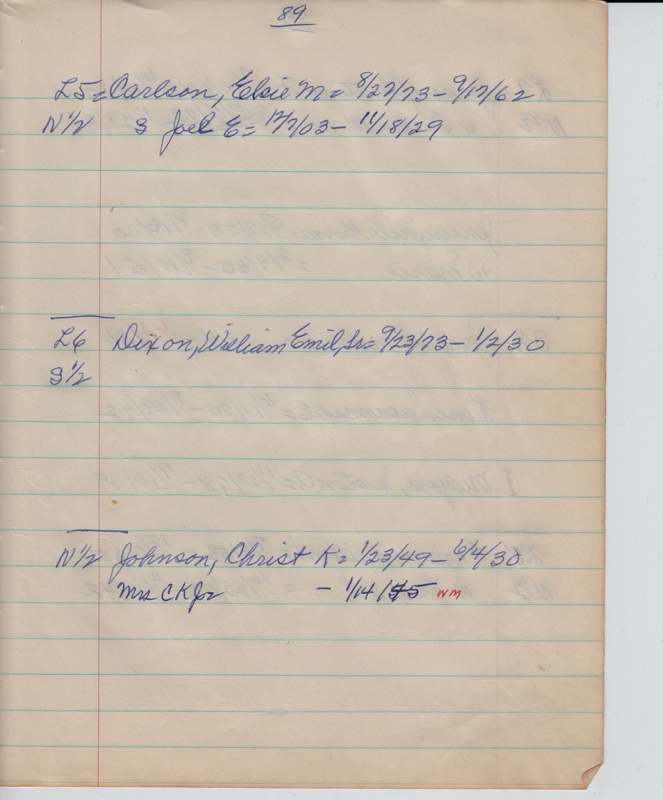 89
L5= Carlson, Elsie M = 8/27/73 - 9/17/62
N 1/2 S Joel E = 12/7/03 - 11/18/29
L6 Dixon, William Emil, Sr = 9/23/73 - 1/2/30
S 1/2
N 1/2 Johnson, Christ K = 1/23/49 - 6/4/30
Mrs CKJ - 1/14/ 5 wm